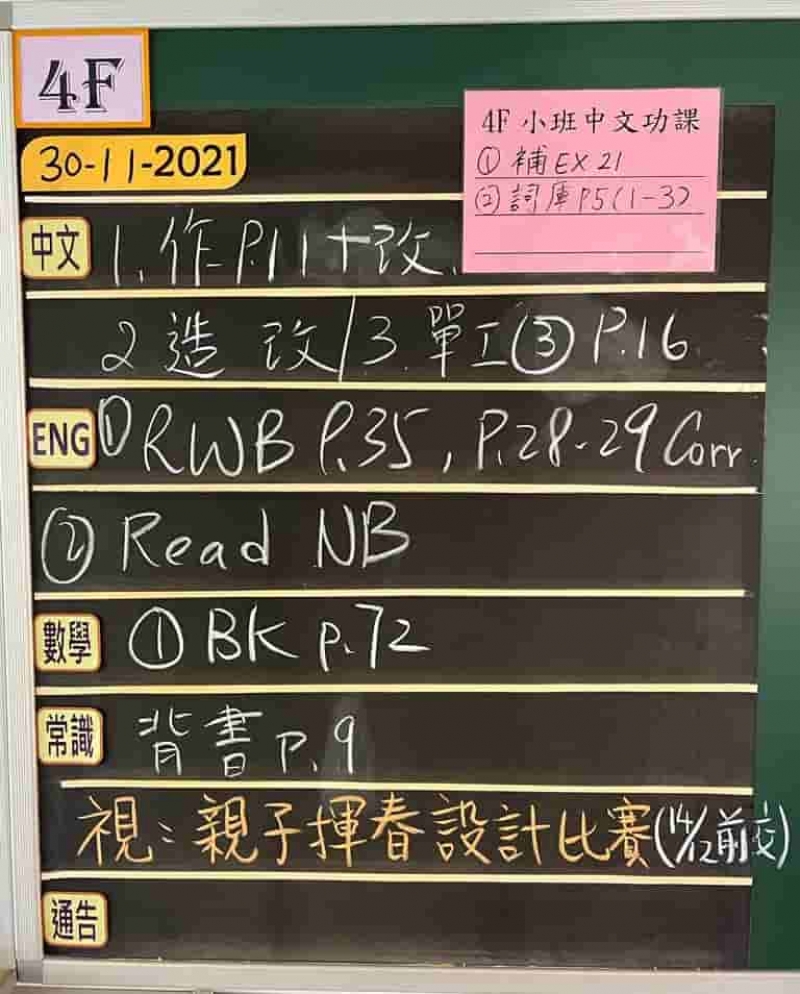 4F
30-11-2021
4F 小班中文功課
① 補 EX 21
② 詞庫 P5(1-3)
中文 1. 作 P.11+改.
2 造 改/3. 單工③ P.16
ENG ① RWB P.35, P.28-29 Corr.
② Read NB
數學 ① BK p.72
常識 背書 P.9
視：親子揮春設計比賽(14/12前交)
通告